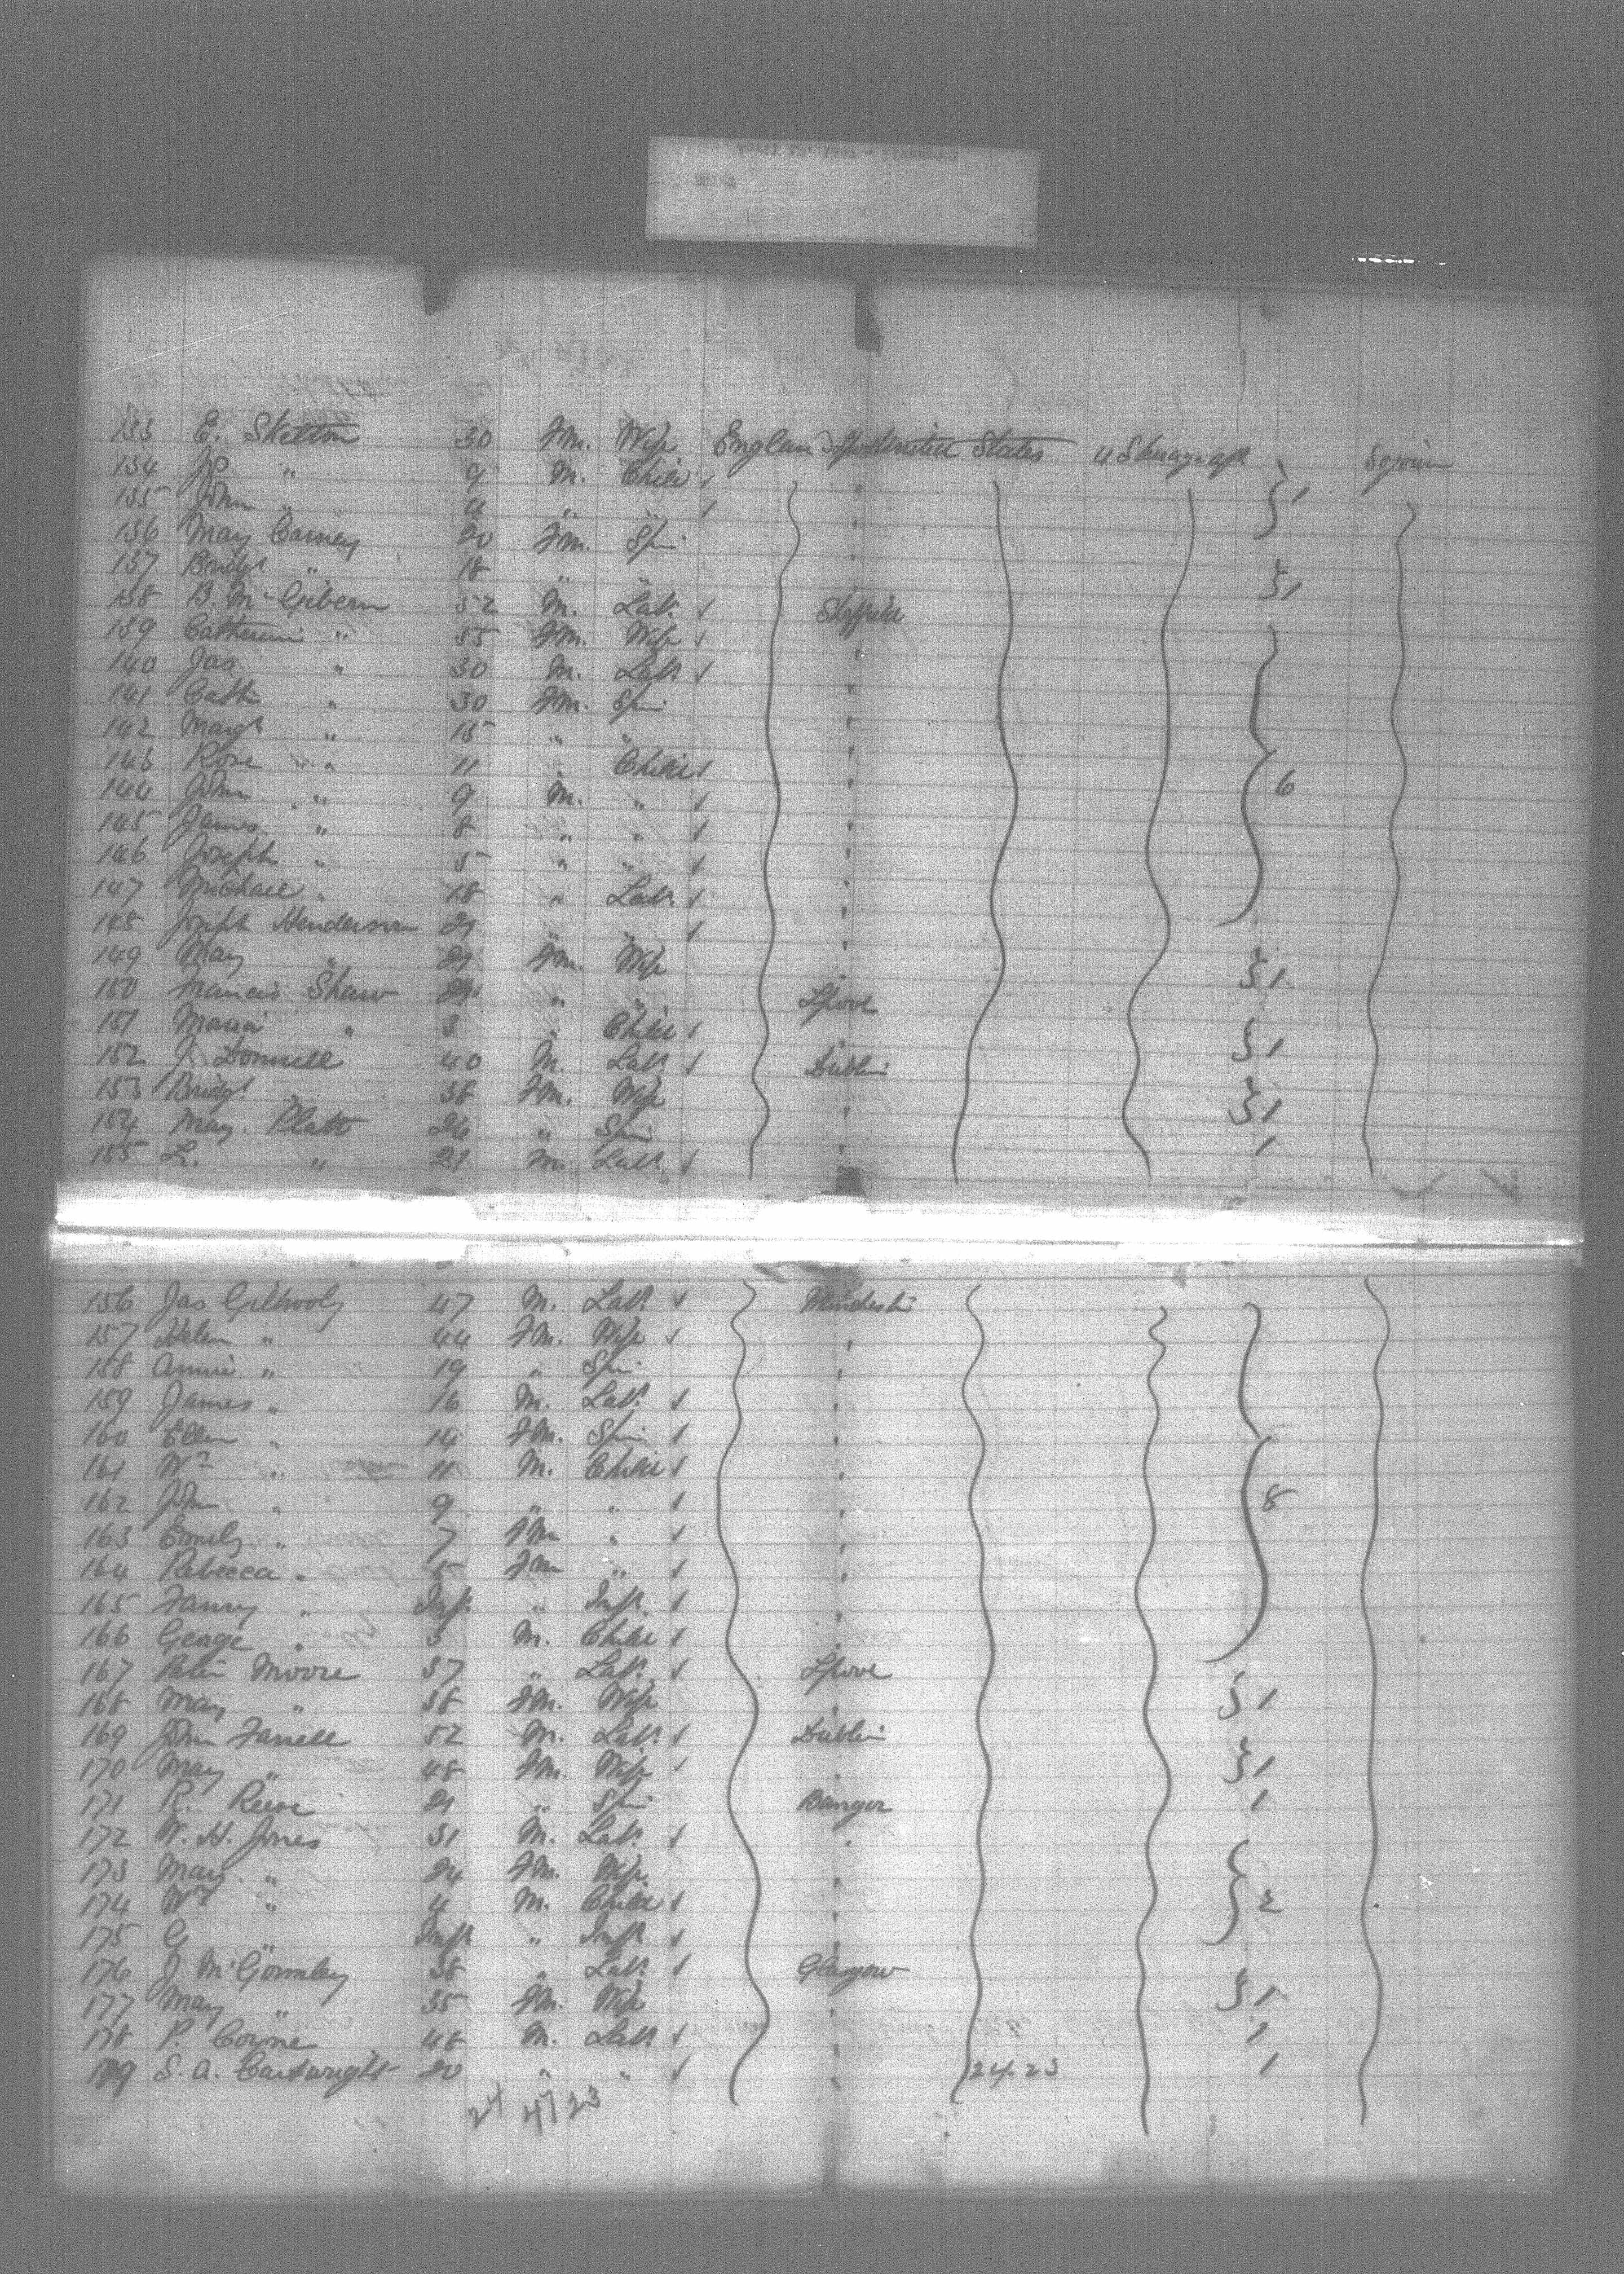 133 E. Skelton 30 Fm. Wife England Lpool United States U Steerage aft Sojourn
134 JP " 9 M. Child
135 John " 4 " " 1
136 Mary Carney 20 Fm. Spin
137 Bridgt " 18 " " 1
138 B. McGibern 52 M. Labr. Sheffield
139 Catherine " 55 Fm. Wife
140 Jas " 30 M. Labr.
141 Cath " 30 Fm. Spin
142 Margt " 15 " "
143 Rose " 11 " Child
144 John " 9 M. " 6
145 James " 8 " "
146 Joseph " 5 " "
147 Michael " 18 " Labr.
148 Joseph Henderson 21 " "
149 Mary " 21 Fm. Wife 1
150 Francis Shaw 24 " " Lpool
151 Maria " 3 " Child 1
152 J. Donnell 40 M. Labr. Dublin
153 Bridgt " 38 Fm. Wife 1
154 Mary Platt 26 " Spin 1
155 L. " 21 M. Labr.
156 Jas Gilhooly 47 M. Labr. Manchester
157 Helen " 44 Fm. Wife
158 Annie " 19 " Spin
159 James " 16 M. Labr.
160 Ellen " 14 Fm. Spin
161 Wm " 11 M. Child
162 John " 9 " " 8
163 Emily " 7 Fm "
164 Rebecca " 5 Fm "
165 Fanny " Inft. " Inft.
166 George " 3 M. Child
167 Peter Moore 37 " Labr. Lpool
168 Mary " 38 Fm. Wife 1
169 John Farrell 52 M. Labr. Dublin
170 Mary " 48 Fm. Wife 1
171 R. Reese 21 " Spin Bangor 1
172 W. H. Jones 31 M. Labr.
173 Mary " 24 Fm. Wife
174 Wm " 4 M. Child 2
175 G " Inft " Inft
176 J McGormley 38 " Labr. Glasgow
177 Mary " 35 Fm. Wife 1
178 P. Coyne 48 M. Labr. 1
179 S. A. Cartwright 20 " " 24.23 1
24 47 23